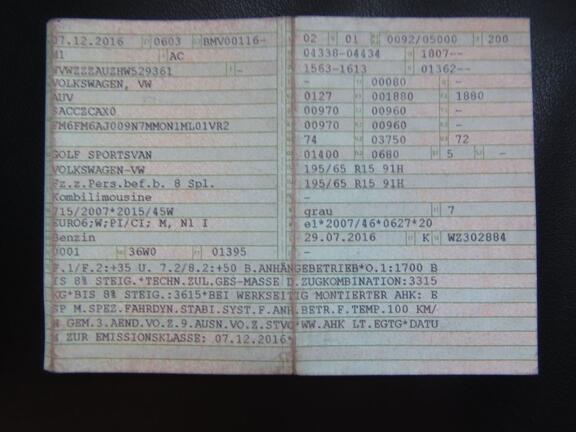 07.12.2016 0603 BMV00116-
M1 AC
WVWZZZAUZHW529361 -
VOLKSWAGEN, VW
AUV
SACCZCAX0
FM6FM6AJ009N7MMON1ML01VR2
GOLF SPORTSVAN
VOLKSWAGEN-VW
Fz.z.Pers.bef.b. 8 Spl.
Kombilimousine
715/2007*2015/45W
EURO6;W;PI/CI; M, N1 I
Benzin
0001 36W0 01395
02 01 0092/05000 200
04338-04434 1807--
1563-1613 01362--
- 00080 -
0127 001880 1880
00970 00960 -
00970 00960 -
74 03750 72
01400 0680 5 -
195/65 R15 91H
195/65 R15 91H
-
grau 7
e1*2007/46*0627*20
29.07.2016 K WZ302884
F.1/F.2:+35 U. 7.2/8.2:+50 B.ANHÄNGEBETRIEB*O.1:1700 B
IS 8% STEIG.*TECHN.ZUL.GES-MASSE D.ZUGKOMBINATION:3315
KG*BIS 8% STEIG.:3615*BEI WERKSEITIG MONTIERTER AHK: E
SP M.SPEZ.FAHRDYN.STABI.SYST.F.ANH.BETR.F.TEMP.100 KM/
H GEM.3.AEND.VO.Z.9.AUSN.VO.Z.STVO*WW.AHK LT.EGTG*DATU
M ZUR EMISSIONSKLASSE: 07.12.2016*